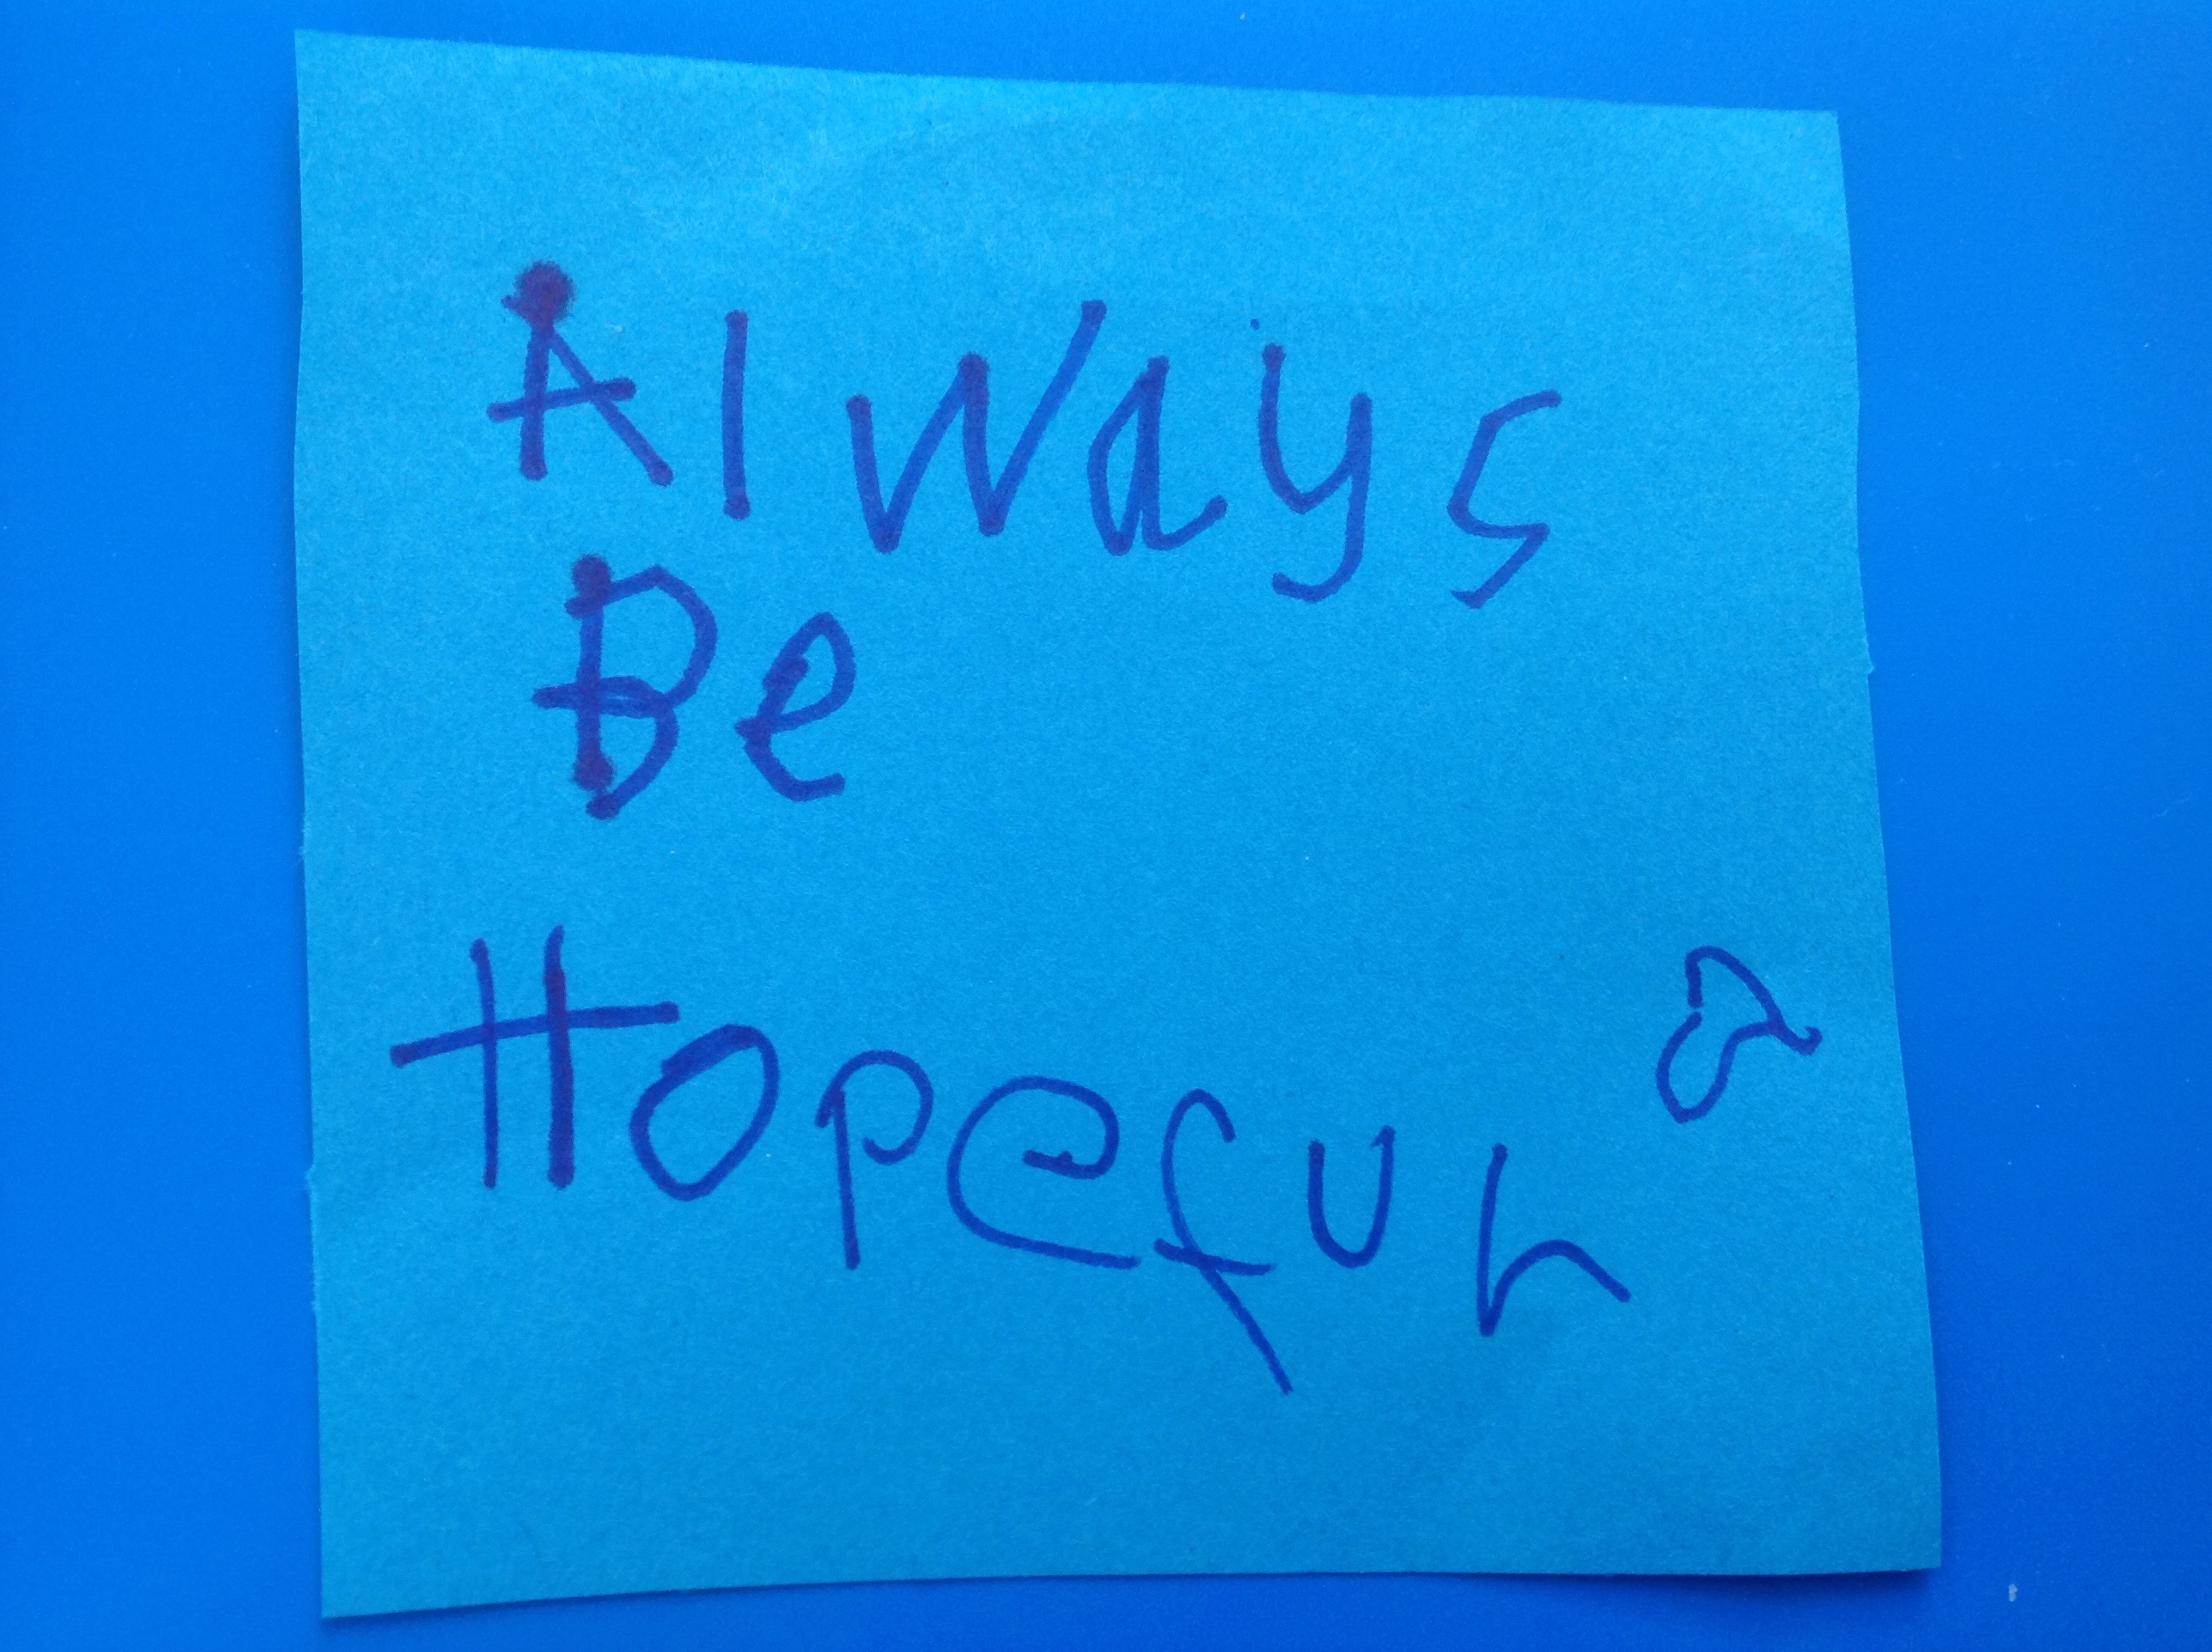 Always
Be
Hopeful